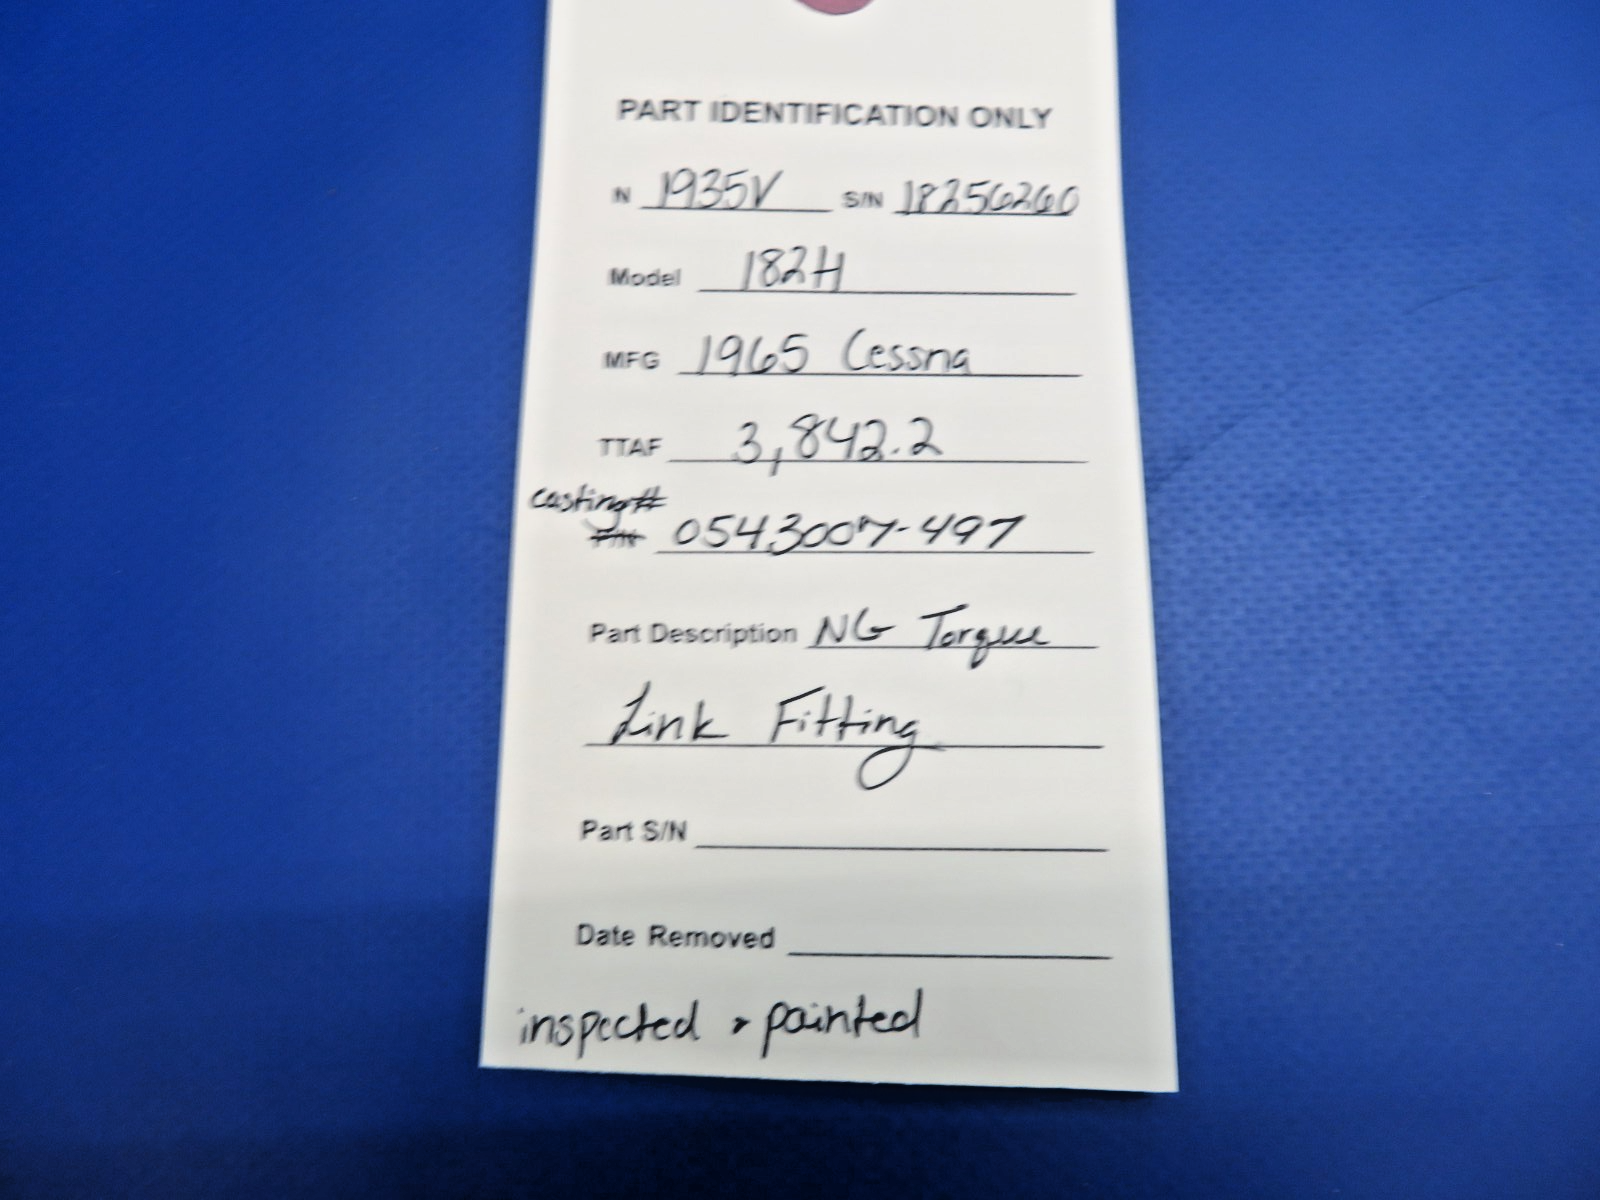 PART IDENTIFICATION ONLY
N 1935V S/N 18256260
Model 182H
MFG 1965 Cessna
TTAF 3,842.2
casting#
P/N 0543007-497
Part Description NG Torque
Link Fitting
Part S/N
Date Removed
inspected & painted